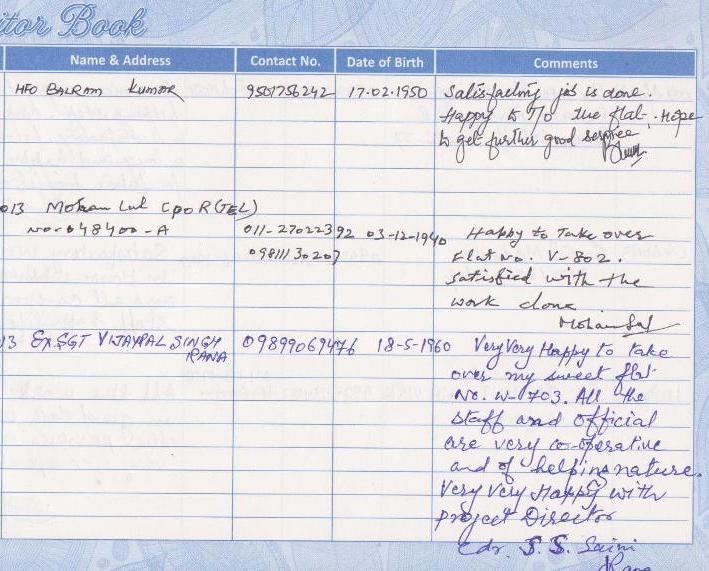 itor Book
Name & Address Contact No. Date of Birth Comments
HFO BALRAM KUMAR 9501756242 17.02.1950 Satisfactory job is done.
Happy to T/O the flat. Hope
to get further good service
013 Mohan Lal CPO R(TEL)
No-048400-A 011-27022392 03-12-1940 Happy to Take over
09811130207 Flat No. V-802.
satisfied with the
work done
Mohan Lal
13 Ex SGT VIJAYPAL SINGH 09899069476 18-5-1960 Very Very Happy to take
RANA over my sweet flat
No. W-703. All the
staff and official
are very co-operative
and of helping nature.
Very Very Happy with
project Director
Cdr. S.S. Saini
Rana